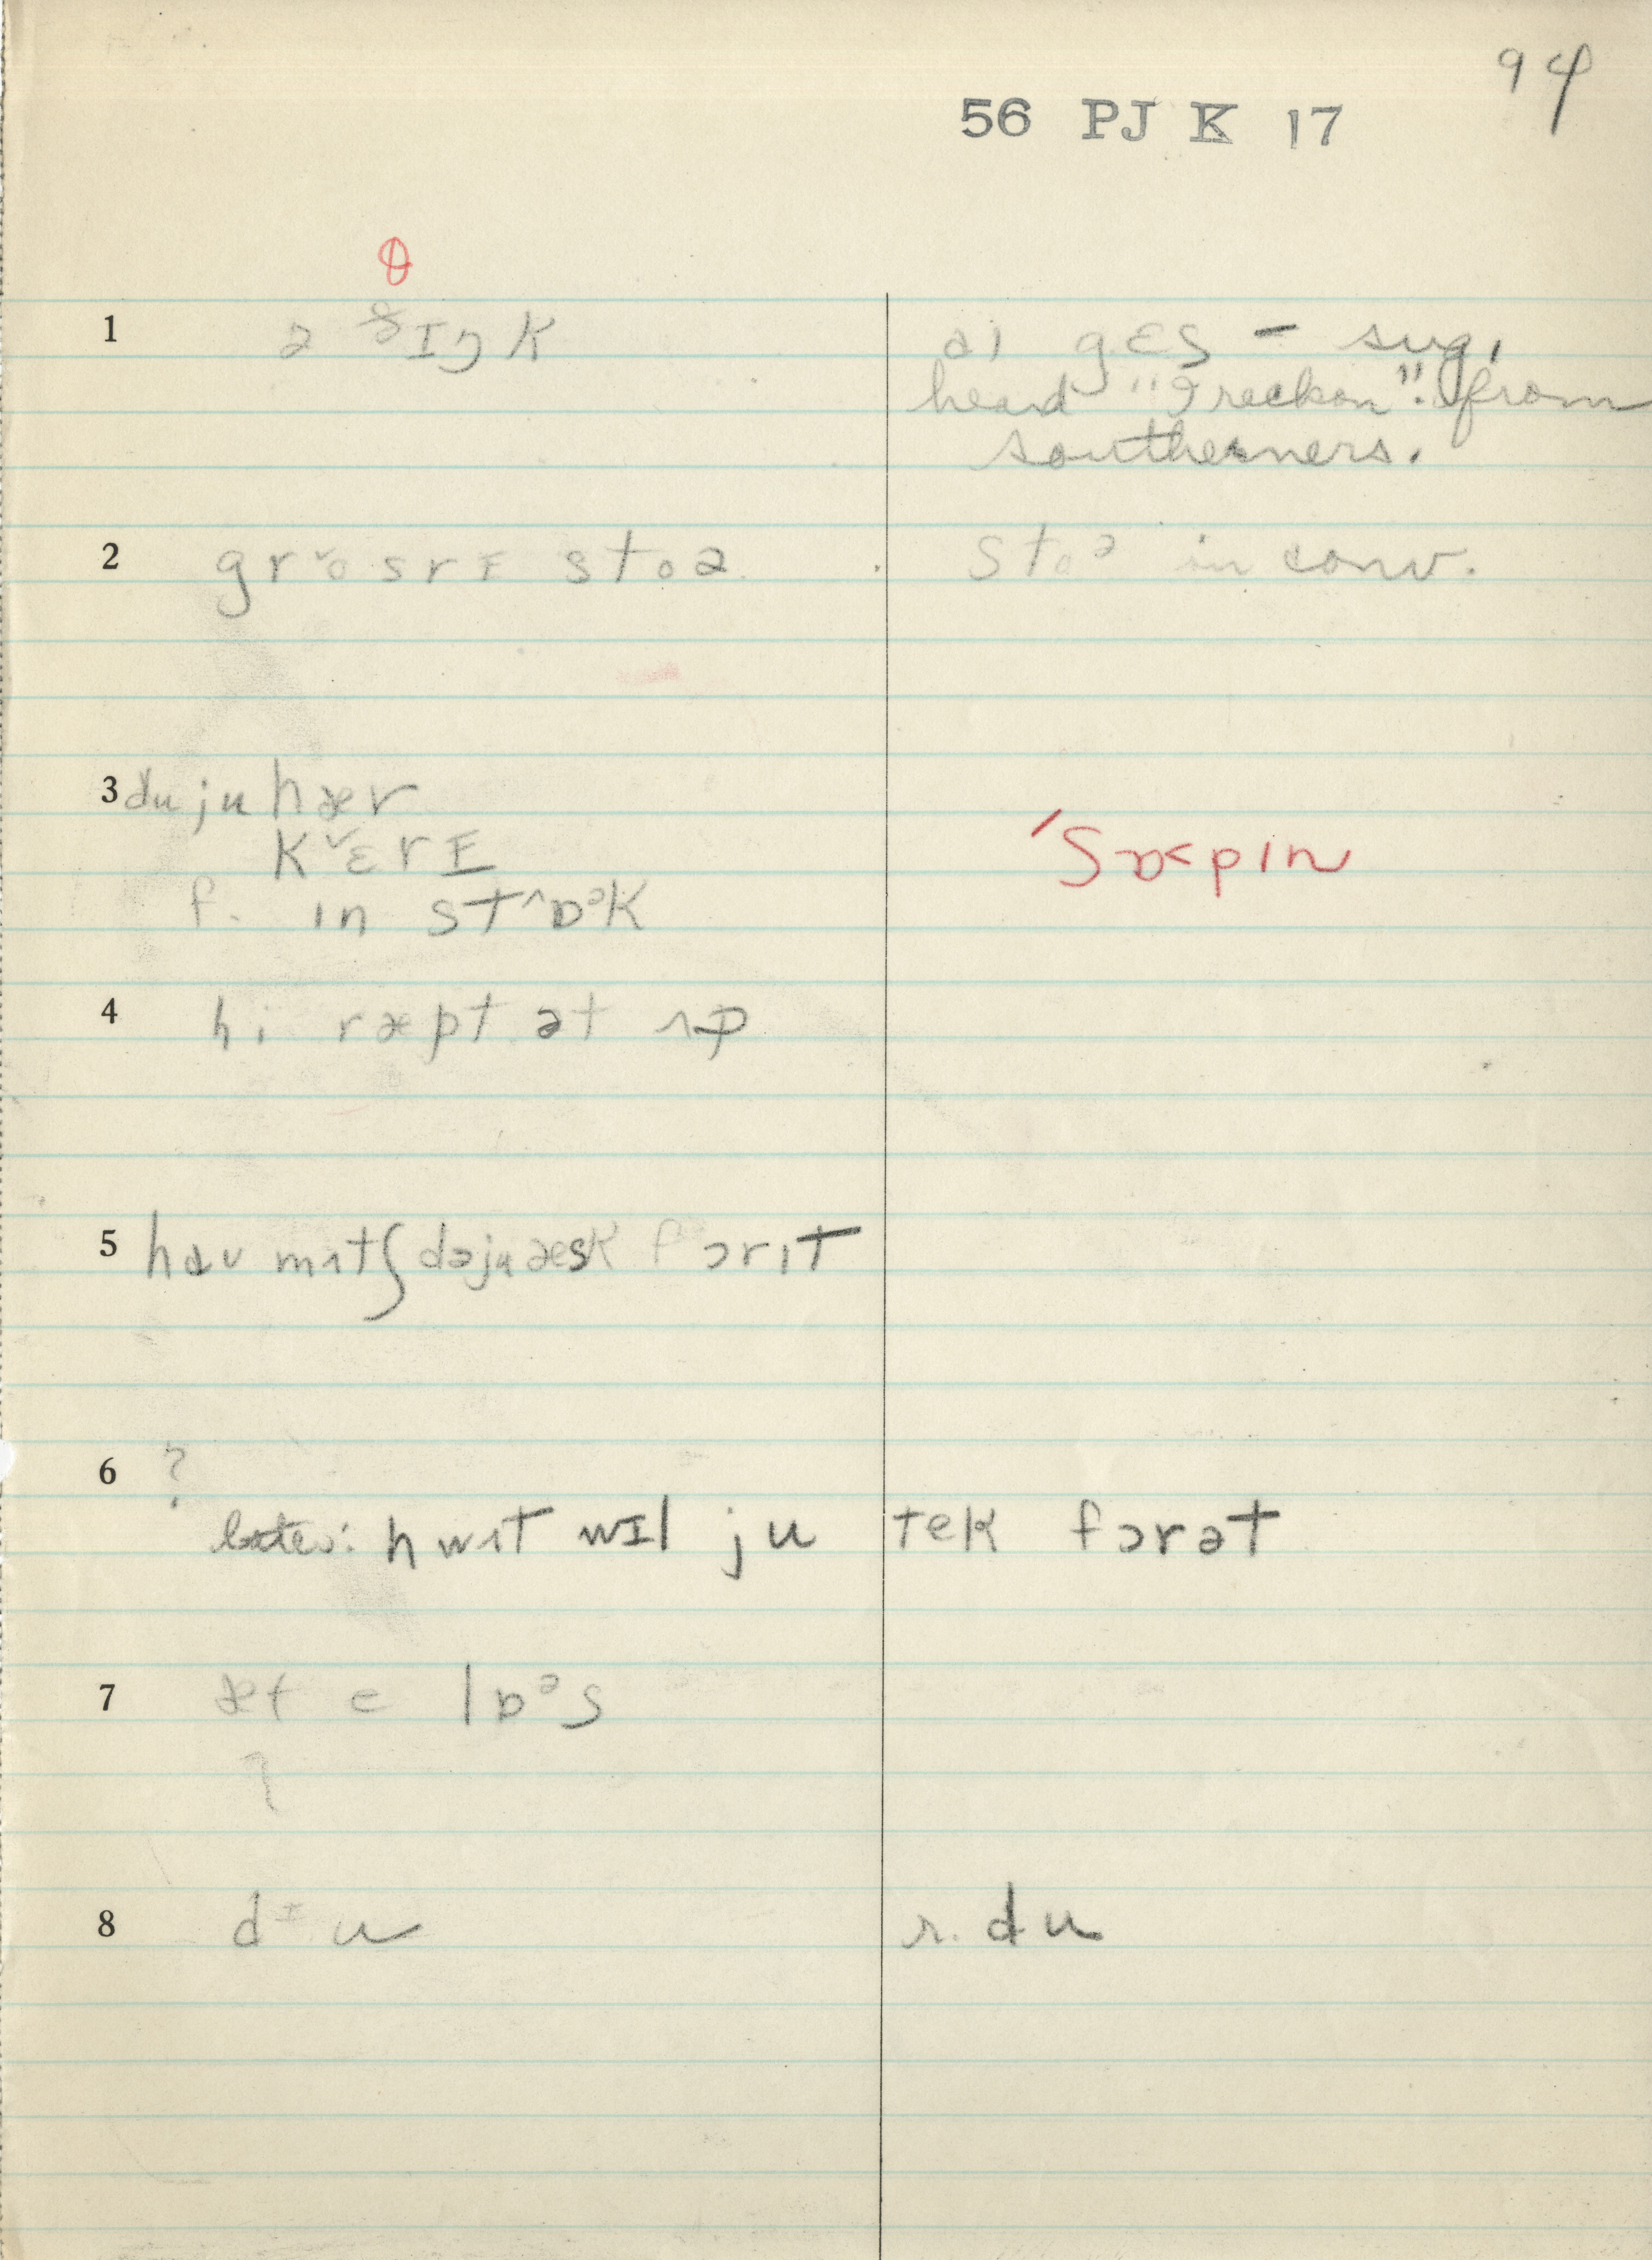 94
56 PJ K 17
θ
1 ə ɪŋk aɪ gɛs – sug,
heard "I reckon". from
southerners.
2 grˇosrɪ stoə stoᵊ in conv.
3 du ju hæv
kˇɛrɪ
f. ɪn st^ɒᵊk
ˈʃɒ<pɪn
4 hi ræpt ət ʌp
5 haʊ mʌtʃ də ju æsk f ɔr ɪt
6 ?
later: hwʌt wɪl ju tek fɔr ət
7 æt e lɒᵊs
?
8 dᶤu r. du